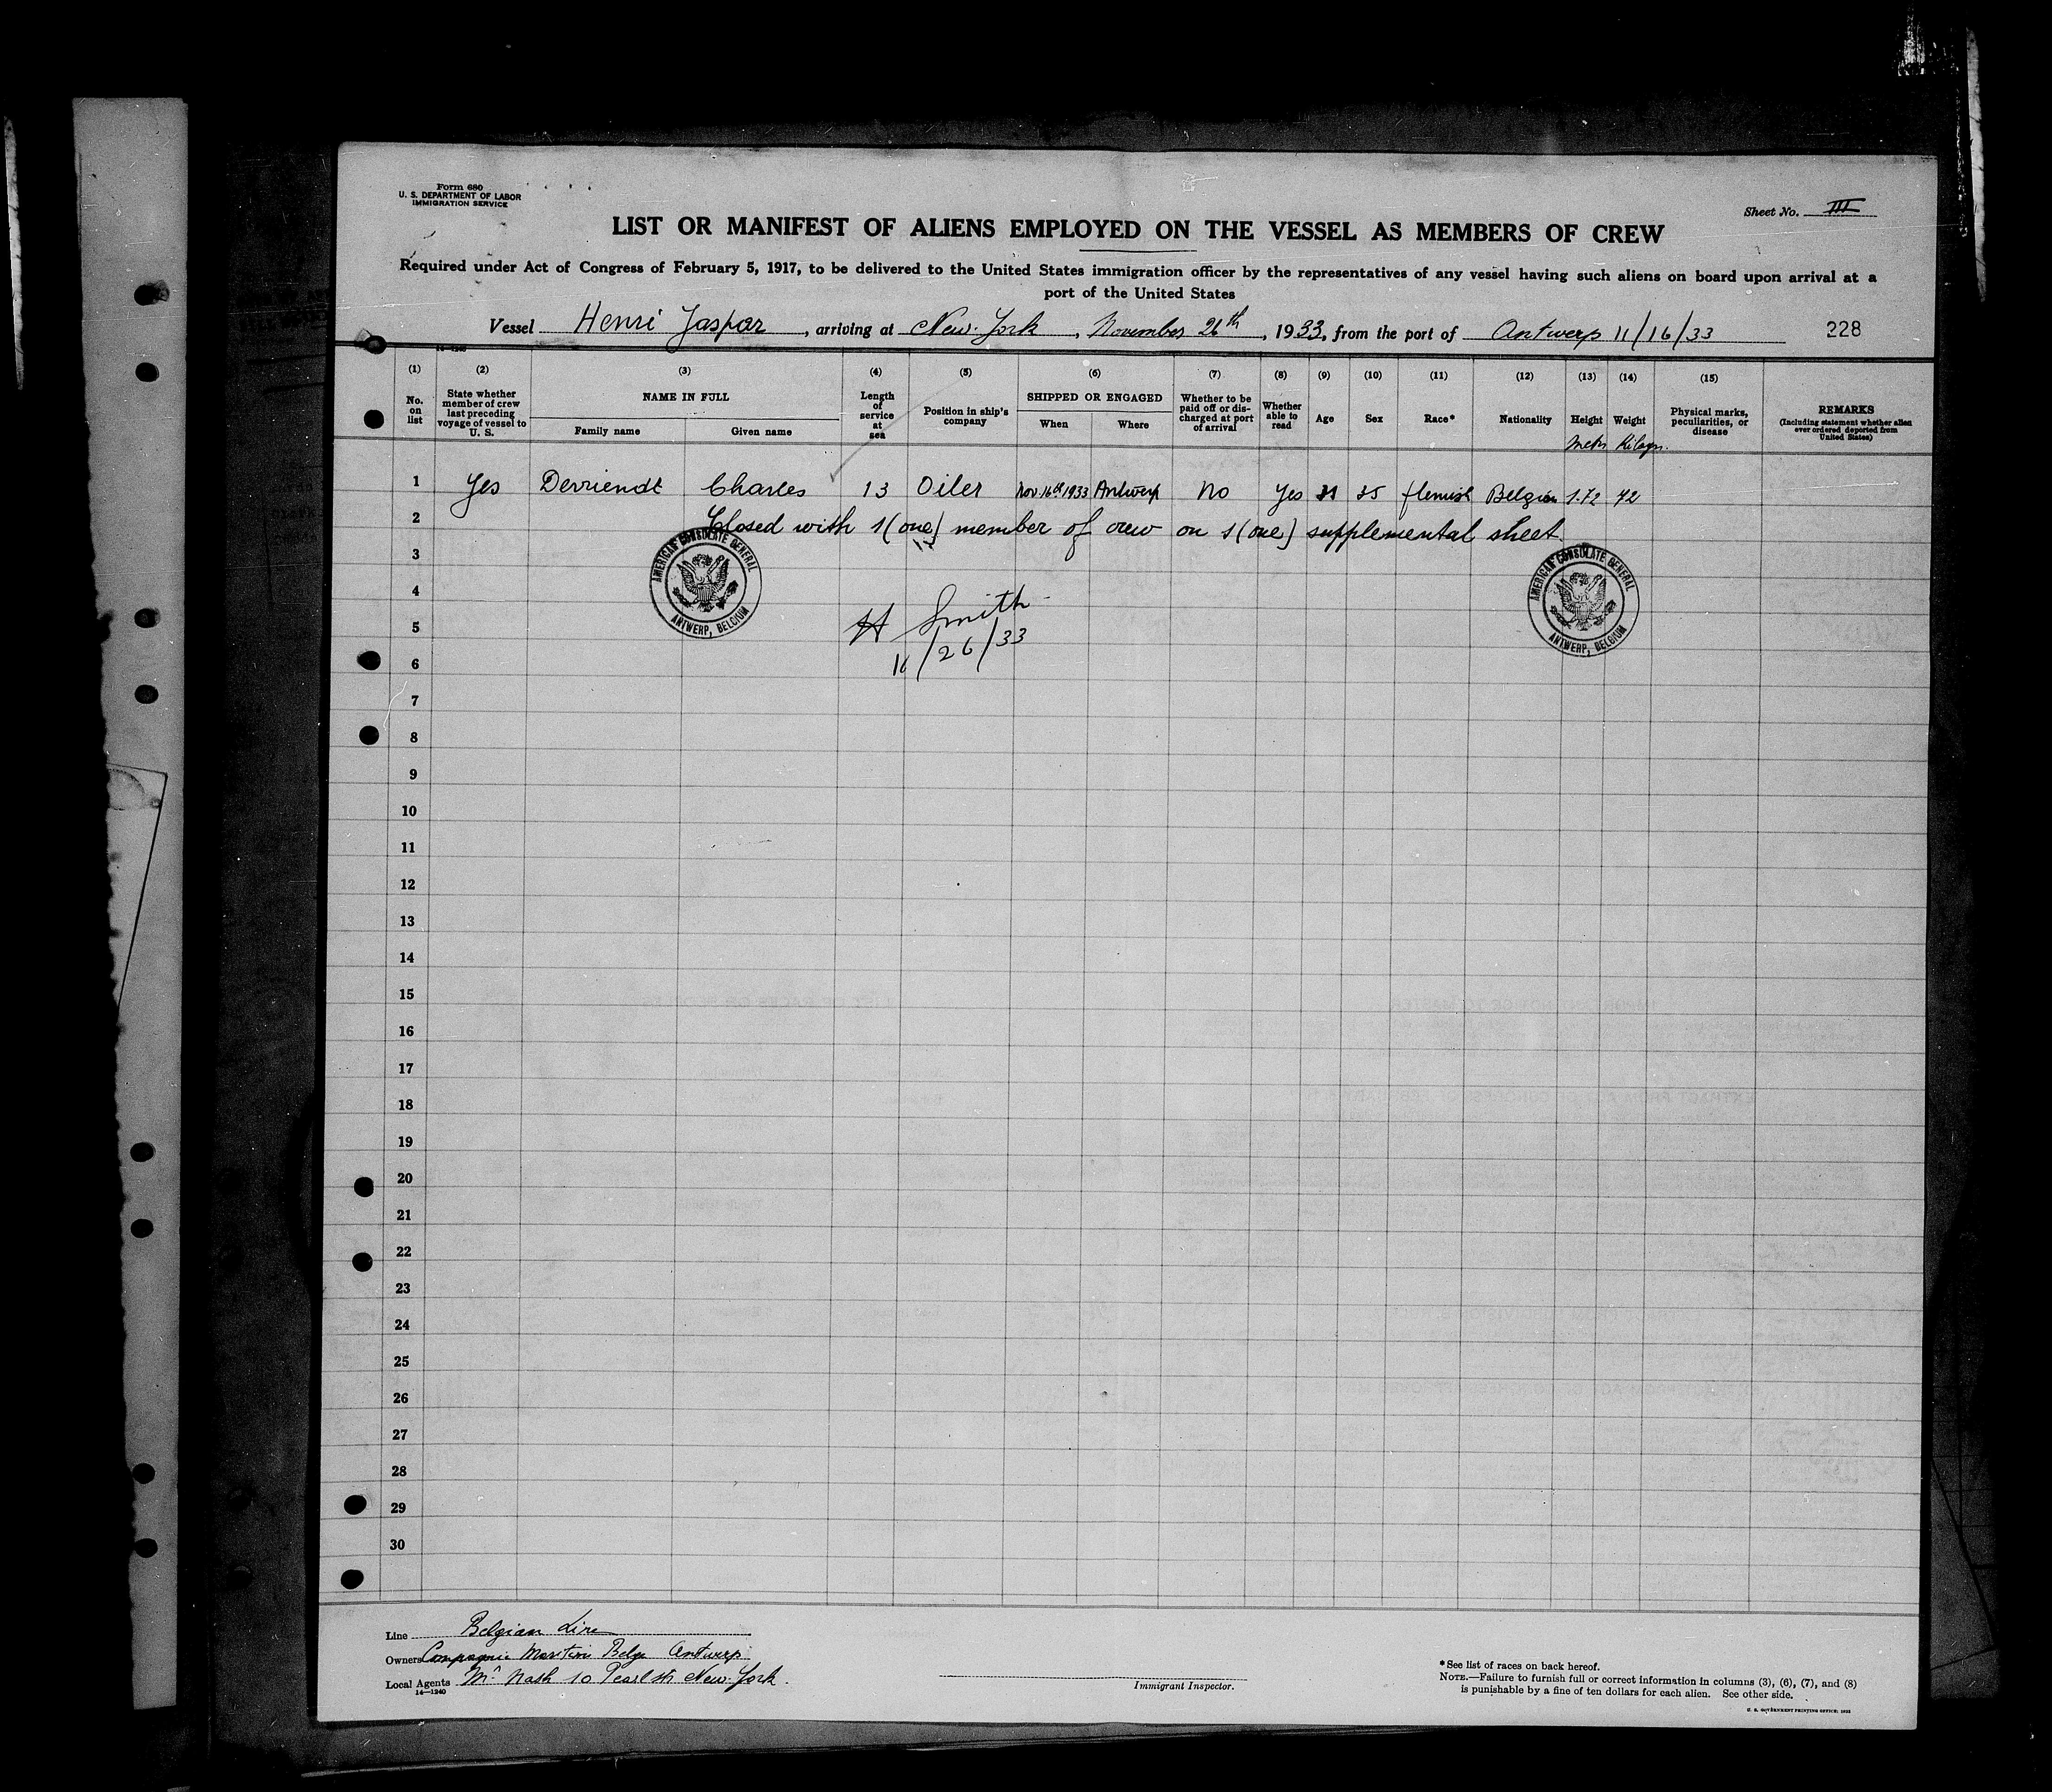 Form 680
U. S. DEPARTMENT OF LABOR
IMMIGRATION SERVICE
Sheet No. III
LIST OR MANIFEST OF ALIENS EMPLOYED ON THE VESSEL AS MEMBERS OF CREW
Required under Act of Congress of February 5, 1917, to be delivered to the United States immigration officer by the representatives of any vessel having such aliens on board upon arrival at a
port of the United States
Vessel Henri Jaspar, arriving at New-York, November 26th, 1933, from the port of Antwerp 11/16/33 228
(1) (2) (3) (4) (5) (6) (7) (8) (9) (10) (11) (12) (13) (14) (15)
No. on list
State whether member of crew last preceding voyage of vessel to U. S.
NAME IN FULL
Family name
Given name
Length of service at sea
Position in ship's company
SHIPPED OR ENGAGED
When
Where
Whether to be paid off or discharged at port of arrival
Whether able to read
Age
Sex
Race*
Nationality
Height
Weight
Physical marks, peculiarities, or disease
REMARKS
(Including statement whether alien ever ordered deported from United States)
1 Yes Derriendt Charles 13 Oiler Nov. 16th 1933 Antwerp No Yes 35 flemish Belgian 1.72 72
2 Closed with 1 (one) member of crew on 1 (one) supplemental sheet.
3
AMERICAN CONSULATE GENERAL
ANTWERP, BELGIUM
AMERICAN CONSULATE GENERAL
ANTWERP, BELGIUM
4
H Smith
5
11/26/33
6
7
8
9
10
11
12
13
14
15
16
17
18
19
20
21
22
23
24
25
26
27
28
29
30
Line Belgian Line
Owners Compagnie Maritim Belge Antwerp
Local Agents Mr Nash 10 Pearl str New-York.
14—1240
Immigrant Inspector.
* See list of races on back hereof.
NOTE.—Failure to furnish full or correct information in columns (3), (6), (7), and (8)
is punishable by a fine of ten dollars for each alien. See other side.